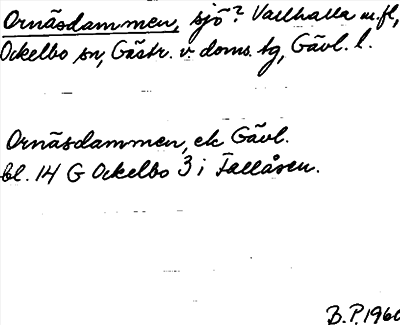 Ornäsdammen, sjö? Vallhalla m.fl,
Ockelbo sn, Gästr. v doms. tg, Gävl. l.
Ornäsdammen, ek Gävl.
bl. 14 G Ockelbo 3 i Fallåsen.
B.P. 1960